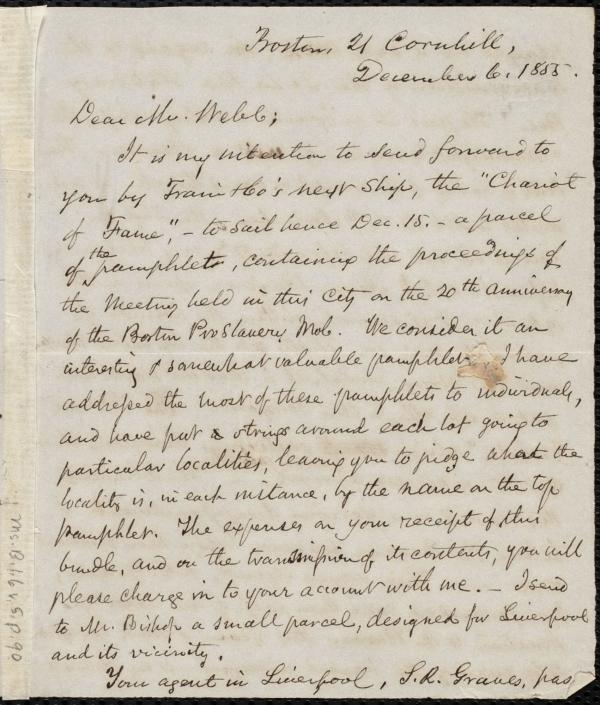 Boston, 21 Cornhill,
December 6, 1855.
Dear Mr. Webb;
It is my intention to send forward to
you by Train & Co's next ship, the "Chariot
of Fame", – to sail hence Dec. 15. – a parcel
of the pamphlets, containing the proceedings of
the Meeting held in this City on the 20th anniversary
of the Boston ProSlavery Mob. We consider it an
interesting & somewhat valuable pamphlet. I have
addressed the most of these pamphlets to individuals,
and have put strings around each lot going to
particular localities, leaving you to judge what the
locality is, in each instance, by the name on the top
pamphlet. The expenses on your receipt of this
bundle, and on the transmission of its contents, you will
please charge in to your account with me. – I send
to Mr. Bishop a small parcel, designed for Liverpool
and its vicinity.
Your agent in Liverpool, S.R. Graves, has
Ms.B.1.6 v.5 p.90